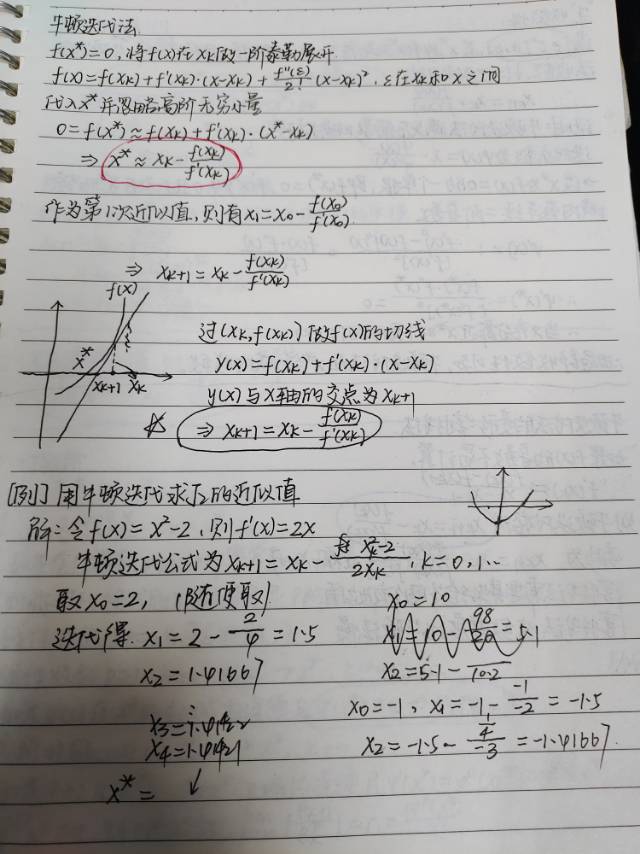 牛顿迭代法
f(x*)=0, 将f(x)在xk做一阶泰勒展开
f(x)=f(xk)+f'(xk)·(x-xk)+f''(ε)/2!(x-xk)², ε在xk和x之间
代入x*并忽略高阶无穷小量
0=f(x*)≈f(xk)+f'(xk)·(x*-xk)
⇒ x*≈xk-f(xk)/f'(xk)
作为第1次近似值, 则有x1=x0-f(x0)/f'(x0)
⇒ xk+1=xk-f(xk)/f'(xk)
f(x)
x*
xk+1 xk
过(xk,f(xk))做f(x)的切线
y(x)=f(xk)+f'(xk)·(x-xk)
y(x)与x轴的交点为xk+1
⇒ xk+1=xk-f(xk)/f'(xk)
[例] 用牛顿迭代求√2的近似值
解: 令f(x)=x²-2, 则f'(x)=2x
牛顿迭代公式为xk+1=xk-xk²-2/2xk, k=0,1...
取x0=2, (随便取)
迭代得: x1=2-2/4=1.5
x2=1.41667
⋮
x3=1.4142
x4=1.41421
x*=
x0=10
x1=10-98/20=5.1
x2=5.1-/10.2
x0=-1, x1=-1--1/-2=-1.5
x2=-1.5-1/4/-3=-1.41667